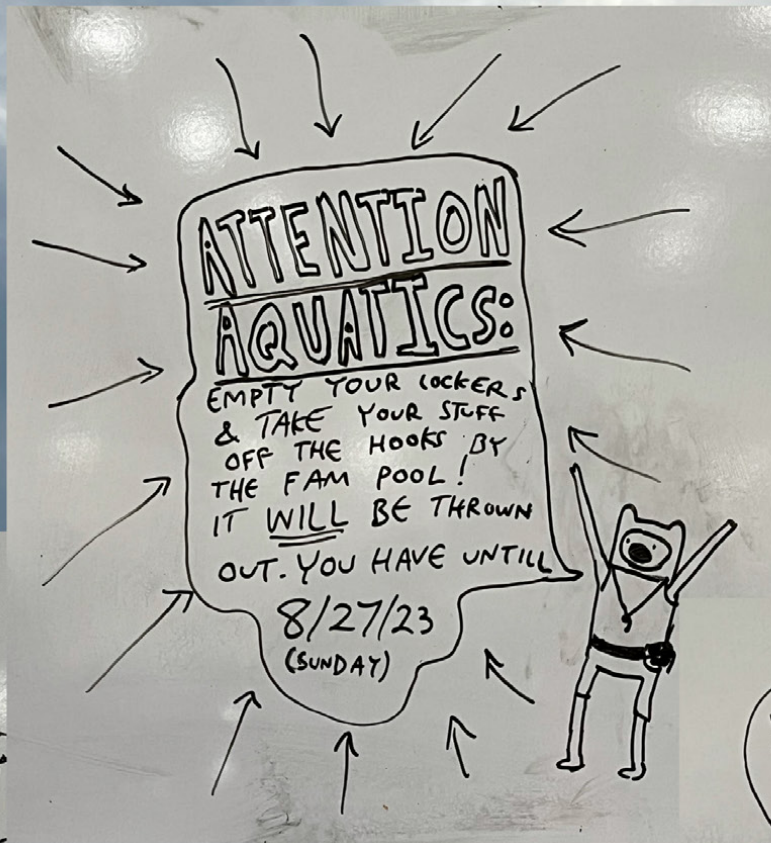 ATTENTION
AQUATICS:
EMPTY YOUR LOCKERS
& TAKE YOUR STUFF
OFF THE HOOKS BY
THE FAM POOL!
IT WILL BE THROWN
OUT. YOU HAVE UNTILL
8/27/23
(SUNDAY)